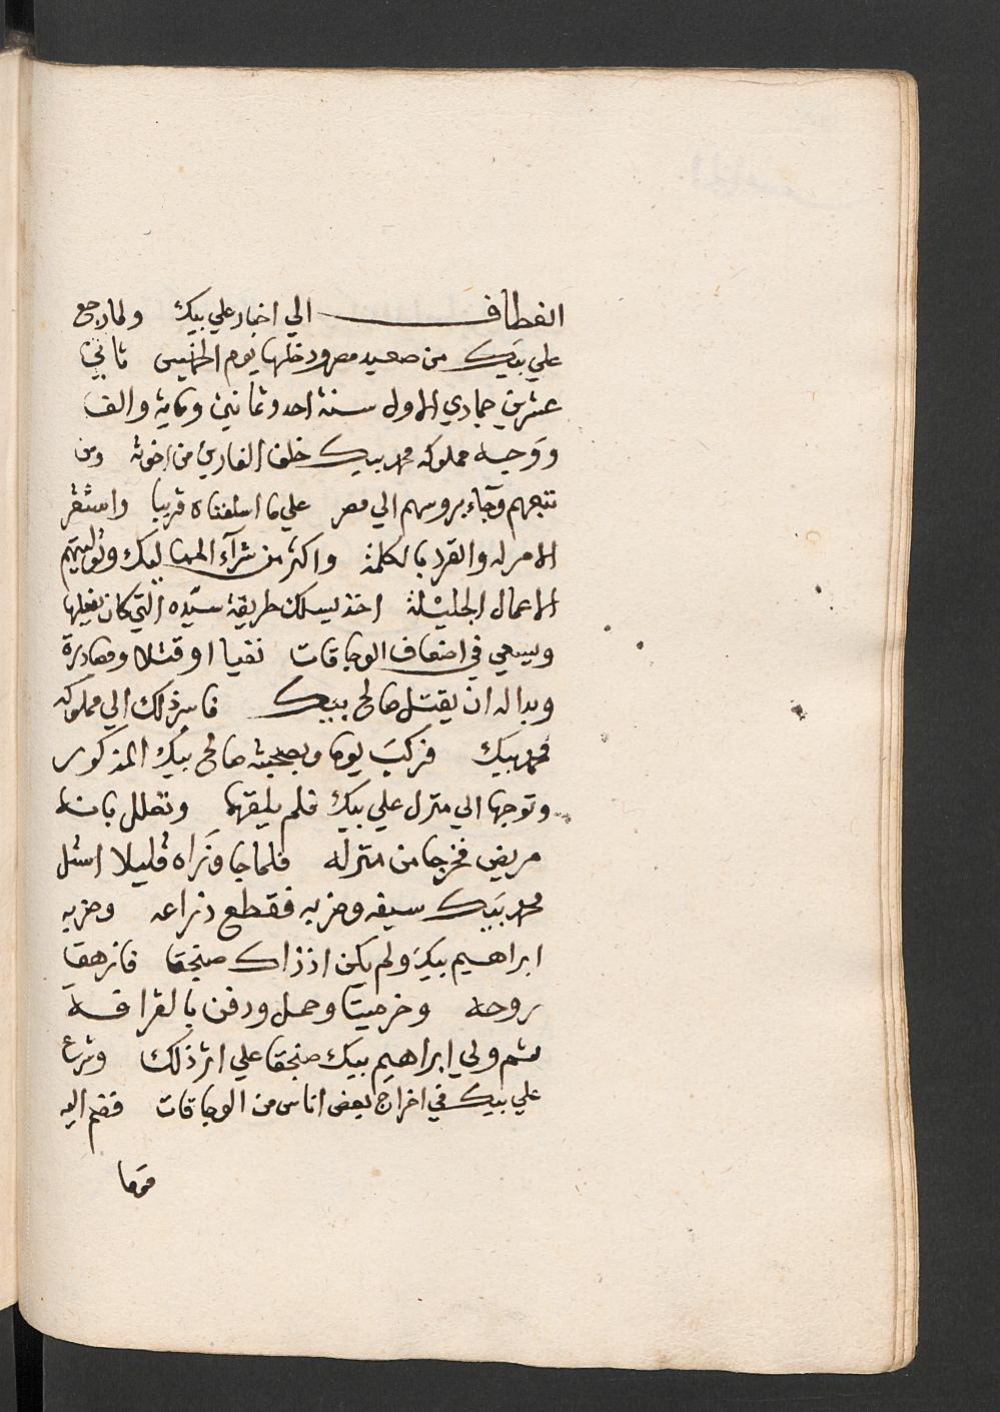 انعطاف الي اخبار علي بيك ولما رجع
علي بيك من صعيد مصر ودخلها يوم الخميس ثاني
عشرين جمادي الاول سنة احد وثمانين وماية والف
ووجه مملوكه محمد بيك خلف الفارين من اخوته ومن
تبعهم وجاء بروسهم الي مصر علي ما اسلفناه قريبا واستقر
الامر له وانفرد بالكلمة واكثر من شرآء المماليك وتوليتهم
الاعمال الجليلة اخذ يسلك طريقة سيّده التي كان يفعلها
ويسعي في اضعاف الوجاقات نفيا او قتلا ومصادرة
وبدا له ان يقتل صالح بيك فاسر ذلك الي مملوكه
محمد بيك فركب يوما وبصحبته صالح بيك المذكور
وتوجها الي منزل علي بيك فلم يلقهما وتعلل بانه
مريض فخرجا من منزله فلما جاوزاه قليلا استل
محمد بيك سيفه وضربه فقطع ذراعه وضربه
ابراهيم بيك ولم يكن اذ ذاك صنجقا فازهقا
روحه وخر ميتا وحمل ودفن بالقرافه
ثم ولي ابراهيم بيك صنجقا علي اثر ذلك وشرع
علي بيك في اخراج بعض اناس من الوجاقات فضم اليه